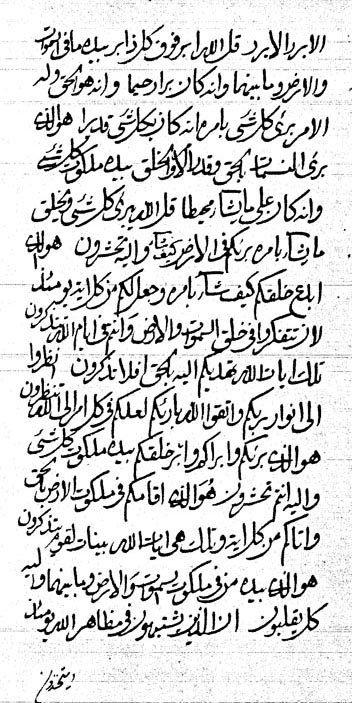 الابرر الابرد قل الله ابر فوق كل ذا ابر بيده ما في السموات
والارض وما بينهما وانه كان برارا رحيما وانه هو الحق وله
الامر يبرئ كل شئ بامره انه كان بكل شئ قديرا هو الذى
برئ النسمات بالحق وقدر الامر والخلق بيده ملكوت كل شئ
وانه كان على ما يشاء محيطا قل الله يبرئ كل شئ ويخلق
ما يشاء بامره يريكم في الارض كيف يشاء واليه تحشرون هو الذى
ابدع خلقكم كيف يشاء بامره وجعل لكم من كل اية يومئذ
لان تتفكروا في خلق السموات والارض وانتم في ايام الله تتذكرون
تلك ايات الله يهديكم اليه بالحق افلا تذكرون انظروا
الى انوار ربكم واتقوا الله بارئكم لعلكم في كل امر الى الله تنظرون
هو الذى بريكم وابراكم وابر خلقكم بيده ملكوت كل شئ
واليه انتم تحشرون هو الذى اقامكم في ملكوت الارض بالحق
واتاكم من كل اية وتلك هى ايات الله بينات لقوم يتذكرون
هو الذى بيده من في ملكوت السموات والارض وما بينهما واليه
كل يقلبون ان الذين يشتبهون في مظاهر الله يومئذ